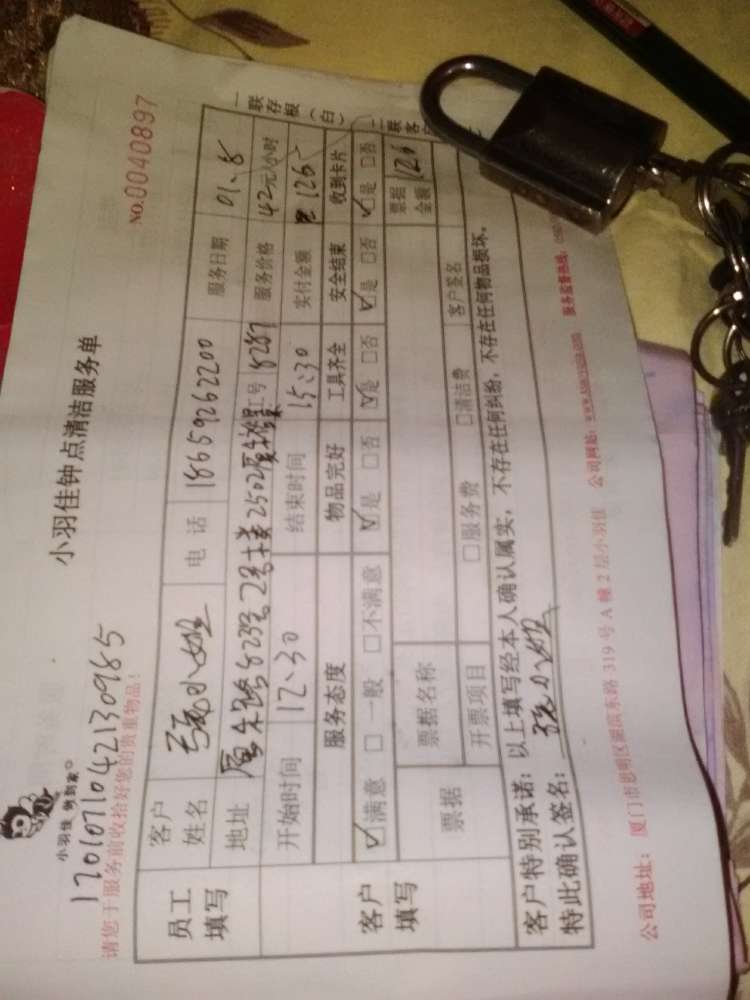 小羽佳 帮到家
小羽佳钟点清洁服务单
1701071042130985
NO.0040897
请您于服务前收拾好您的贵重物品!
员工填写
客户姓名 张小姐 电话 18659262200 服务日期 01、8
地址 厦禾路823号2号楼2502 工号 8287 服务价格 42元/小时
开始时间 12、30 结束时间 15:30 实付金额 126
客户填写
服务态度 物品完好 工具齐全 安全结束 收到卡片
☑满意 □一般 □不满意 ☑是 □否 ☑是 □否 ☑是 □否 ☑是 □否
票据 票据名称 票据金额 126
开票项目 □服务费 □清洁费 客户签名
客户特别承诺:以上填写经本人确认属实,不存在任何纠纷,不存在任何物品损坏。
特此确认签名: 张小姐
公司地址: 厦门市思明区湖滨东路319号A幢2层小羽佳 公司网站: 服务监督热线:
一联存根(白)
二联客户